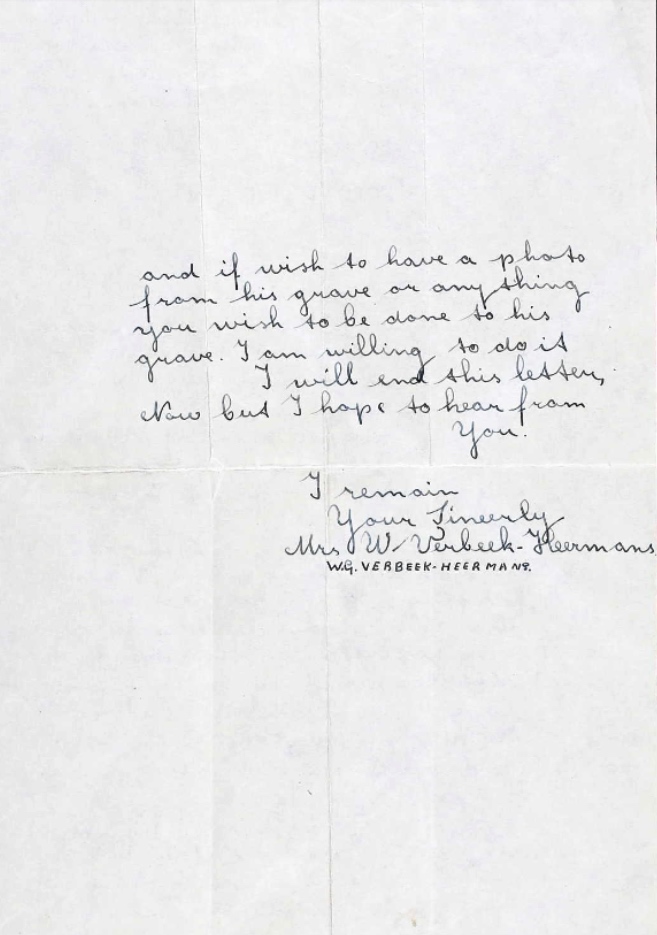 and if wish to have a photo
from his grave or any thing
you wish to be done to his
grave. I am willing to do it
I will end this letter,
Now but I hope to hear from
You.
I remain
Your Sincerly
Mrs W. Verbeek-Heermans
W.G. VERBEEK-HEERMANS.